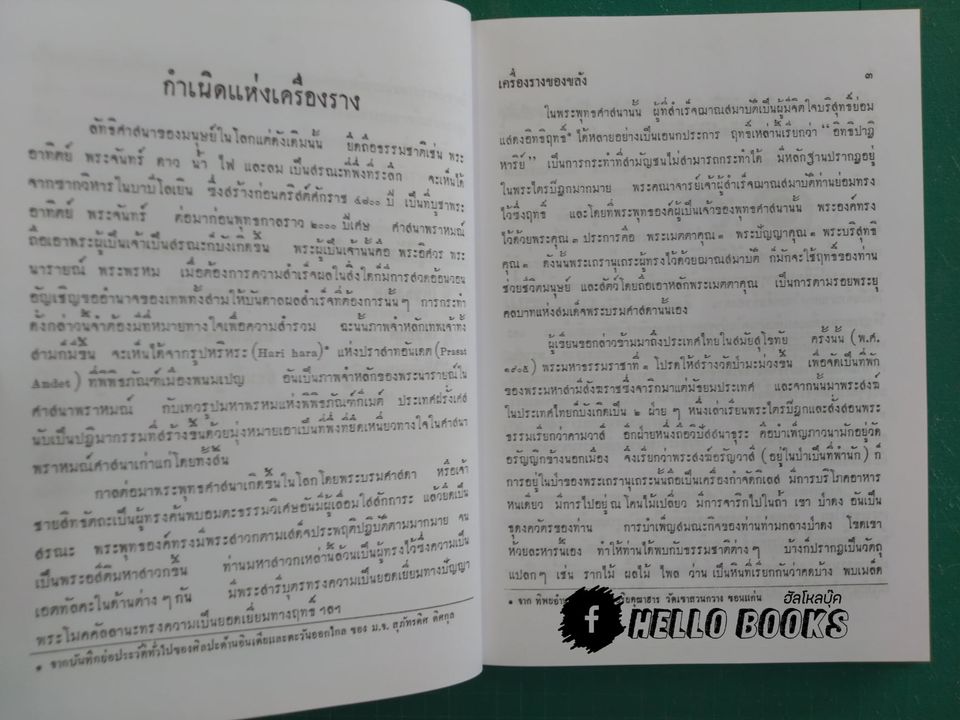 กำเนิดแห่งเครื่องราง
ลัทธิศาสนาของมนุษย์ในโลกแต่ดั้งเดิมนั้น ยึดถือธรรมชาติเช่น พระ
อาทิตย์ พระจันทร์ ดาว น้ำ ไฟ และลม เป็นสรณะที่พึ่งที่ระลึก จะเห็นได้
จากซากวิหารในบาบีโลเยิน ซึ่งสร้างก่อนคริสต์ศักราช ๕๘๐๐ ปี เป็นที่บูชาพระ
อาทิตย์ พระจันทร์ ต่อมาก่อนพุทธกาลราว ๒๐๐๐ ปีเศษ ศาสนาพราหมณ์
ถือเอาพระผู้เป็นเจ้าเป็นสรณะก็บังเกิดขึ้น พระผู้เป็นเจ้านั้นคือ พระอิศวร พระ
นารายณ์ พระพรหม เมื่อต้องการความสำเร็จผลในสิ่งใดก็มีการสวดอ้อนวอน
อัญเชิญขออำนาจของเทพทั้งสามให้บันดาลผลสำเร็จที่ต้องการนั้น ๆ การกระทำ
ดังกล่าวนี้จำต้องมีที่หมายทางใจเพื่อความสำรวม ฉะนั้นภาพจำหลักเทพเจ้าทั้ง
สามก็มีขึ้น จะเห็นได้จากรูปหริหระ (Hari hara)* แห่งปราสาทอันเดต (Prasat
Andet) ที่พิพิธภัณฑ์เมืองพนมเปญ อันเป็นภาพจำหลักของพระนารายณ์ใน
ศาสนาพราหมณ์ กับเทวรูปมหาพรหมแห่งพิพิธภัณฑ์กิเมต์ ประเทศฝรั่งเศส
นับเป็นปฏิมากรรมที่สร้างขึ้นด้วยมุ่งหมายเอาเป็นที่พึ่งทยึดเหนี่ยวทางใจในศาสนา
พราหมณ์ศาสนาเก่าแก่โดยทั้งสิ้น
กาลต่อมาพระพุทธศาสนาเกิดขึ้นในโลกโดยพระบรมศาสดา หรือเจ้า
ชายสิทธัตถะเป็นผู้ทรงค้นพบอมตะธรรมวิเศษอันมีผู้เลื่อมใสสักการะ แล้วยึดเป็น
สรณะ พระพุทธองค์ทรงมีพระสาวกตามเสด็จประพฤติปฏิบัติตามมากมาย จน
เป็นพระอสีติมหาสาวกขึ้น ท่านมหาสาวกเหล่านี้ล้วนเป็นผู้ทรงไว้ซึ่งความเป็น
เอตทัคคะในด้านต่าง ๆ กัน มีพระสารีบุตรทรงความเป็นยอดเยี่ยมทางปัญญา
พระโมคคัลลานะทรงความเป็นยอดเยี่ยมทางฤทธิ์ ฯลฯ
* จากบันทึกย่อประวัติทั่วไปของศิลปะด้านอินเดียและตะวันออกไกล ของ ม.จ. สุภัทรดิศ ดิศกุล
เครื่องรางของขลัง ๓
ในพระพุทธศาสนานั้น ผู้ที่สำเร็จฌาณสมาบัติเป็นผู้มีจิตใจบริสุทธิ์ย่อม
แสดงอิทธิฤทธิ์* ได้หลายอย่างเป็นเอนกประการ ฤทธิ์เหล่านี้เรียกว่า "อิทธิปาฏิ
หาริย์" เป็นการกระทำที่สามัญชนไม่สามารถกระทำได้ มีหลักฐานปรากฏอยู่
ในพระไตรปิฎกมากมาย พระคณาจารย์เจ้าผู้สำเร็จฌาณสมาบัติท่านย่อมทรง
ไว้ซึ่งฤทธิ์ และโดยที่พระพุทธองค์ผู้เป็นเจ้าของพุทธศาสนานั้น พระองค์ทรง
ไว้ด้วยพระคุณ ๓ ประการคือ พระเมตตาคุณ ๑ พระปัญญาคุณ ๑ พระบริสุทธิ
คุณ ๑ ดังนั้นพระเถรานุเถระผู้ทรงไว้ด้วยฌาณสมาบัติ ก็มักจะใช้ฤทธิ์ของท่าน
ช่วยชีวิตมนุษย์ และสัตว์โดยถือเอาหลักพระเมตตาคุณ เป็นการตามรอยพระยุ
คลบาทแห่งสมเด็จพระบรมศาสดานั้นเอง
ผู้เขียนขอกล่าวข้ามมาถึงประเทศไทยในสมัยสุโขทัย ครั้งนั้น (พ.ศ.
๑๙๐๕) พระมหาธรรมราชาที่ ๑ โปรดให้สร้างวัดป่ามะม่วงขึ้น เพื่อจัดเป็นที่พัก
ของพระมหาสามีสังฆราชซึ่งจาริกมาแต่มัชยมประเทศ และจากนั้นมาพระสงฆ์
ในประเทศไทยก็บังเกิดเป็น ๒ ฝ่าย ๆ หนึ่งเล่าเรียนพระไตรปิฎกและสั่งสอนพระ
ธรรมเรียกว่าคามวาสี อีกฝ่ายหนึ่งถือวิปัสสนาธุระ คือบำเพ็ญภาวนามักอยู่วัด
อรัญญิกข้างนอกเมือง จึงเรียกว่าพระสงฆ์อรัญวาสี (อยู่ในป่าเป็นที่พำนัก) ก็
การอยู่ในป่าของพระเถรานุเถระนั้นถือเป็นเครื่องกำจัดกิเลส มีการบริโภคอาหาร
หนเดียว มีการไปอยู่ ณ โคนไม้เปลี่ยว มีการจาริกไปในถ้ำ เขา ป่าดง อันเป็น
ธุดงควัตรของท่าน การบำเพ็ญสมณะกิจของท่านท่ามกลางป่าดง โขดเขา
ห้วยละหารนี้เอง ทำให้ท่านได้พบกับธรรมชาติต่าง ๆ บ้างก็ปรากฏเป็นวัตถุ
แปลก ๆ เช่น รากไม้ ผลไม้ ไพล ว่าน เป็นหินที่เรียกกันว่าคดบ้าง พบเมล็ด
* จาก วัดเขาสวนกวาง ขอนแก่น
ฮัลโหลบุ๊ค
f HELLO BOOKS